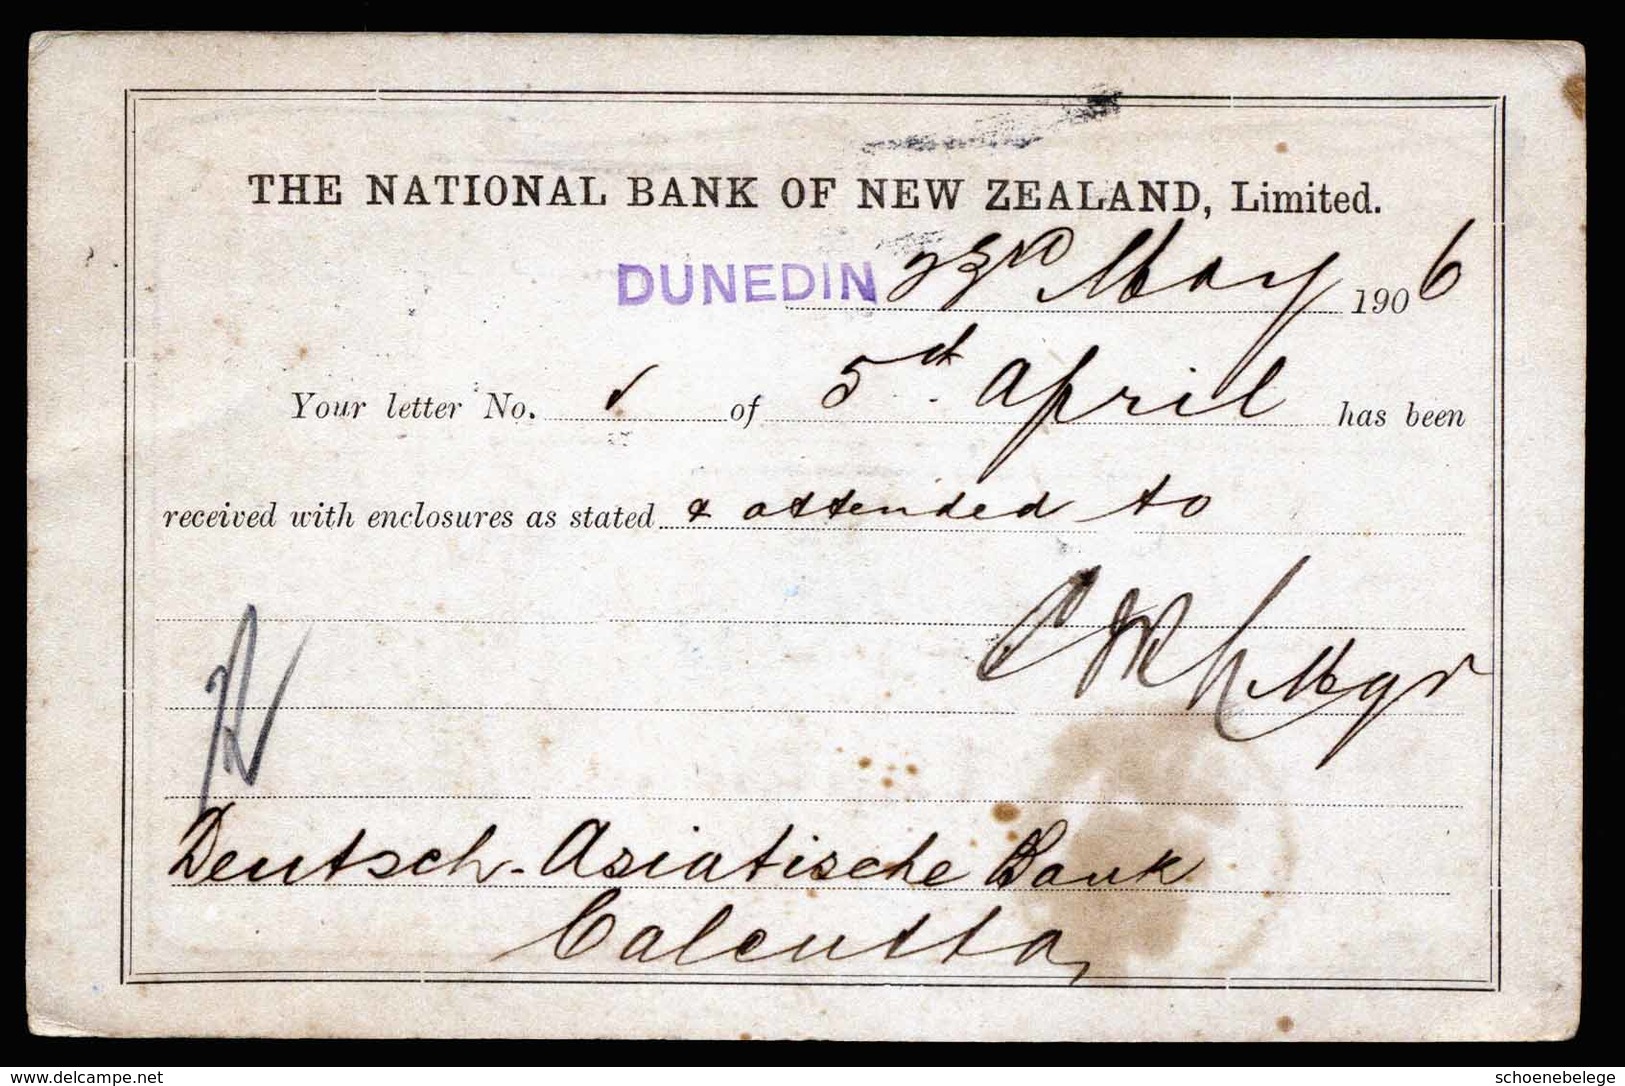 THE NATIONAL BANK OF NEW ZEALAND, Limited.
DUNEDIN 23rd May 1906
Your letter No. of 5th April has been
received with enclosures as stated & attended to
Mgr
Deutsch-Asiatische Bank
Calcutta,
delcampe.net
schoenebelege